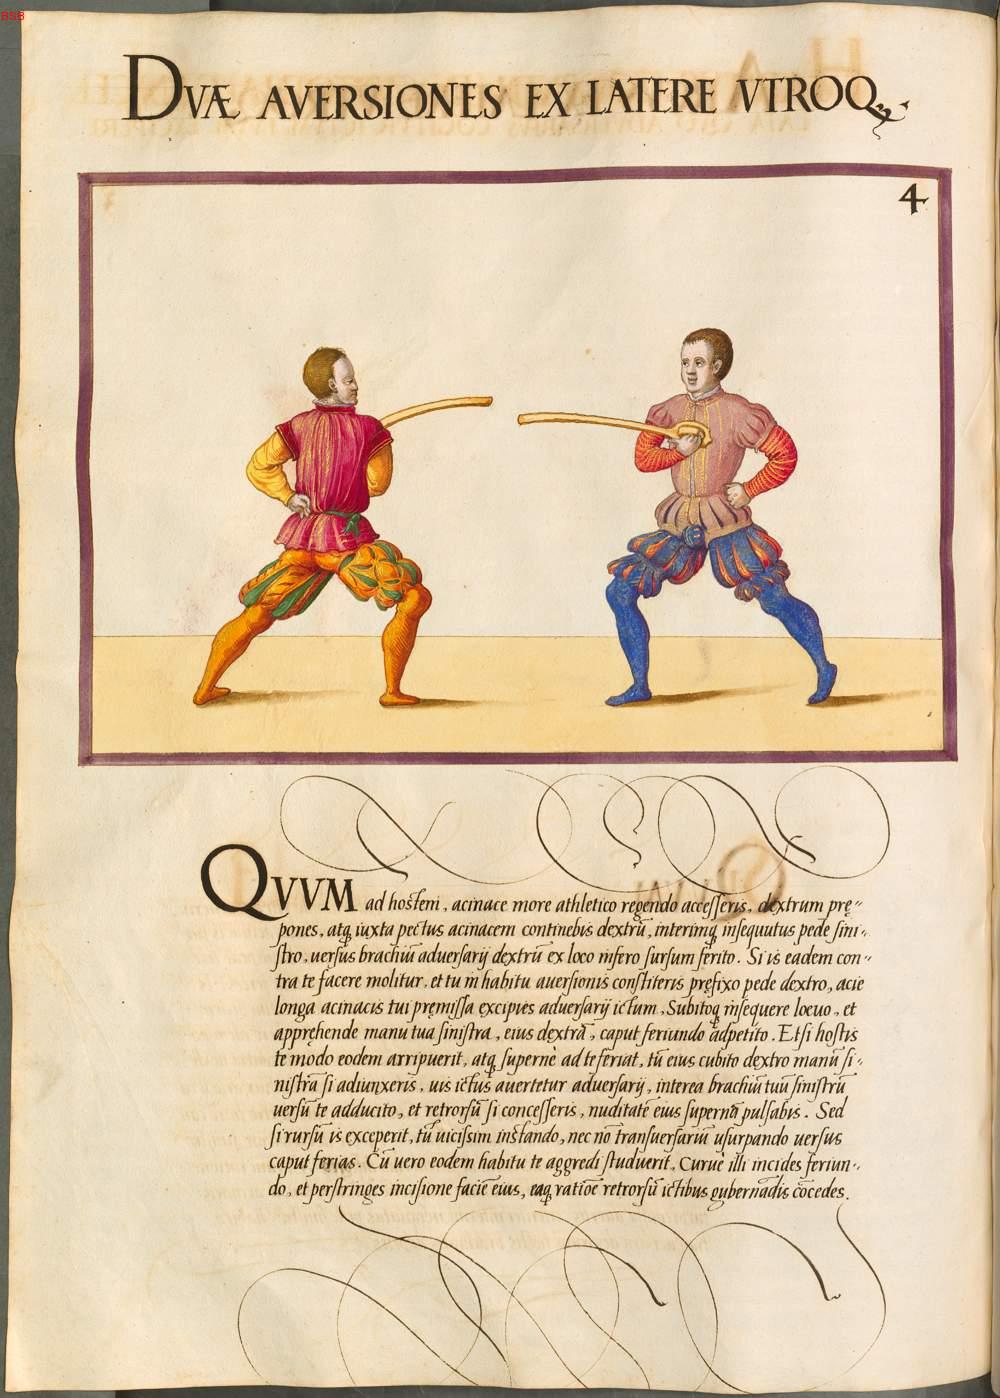 BSB
DVÆ AVERSIONES EX LATERE VTROQꝫ.
4
QVVM ad hostem, acinace more athletico regendo accesseris, dextrum prę-
pones, atq̨ iuxta pectus acinacem continebis dextrū, interimq̨ insequutus pede sini-
stro, uersus brachiū aduersarij dextrū ex loco infero sursum ferito. Si is eadem con-
tra te facere molitur, et tu in habitu auersionis constiteris pręfixo pede dextro, acie
longa acinacis tui pręmissa excipies aduersarij ictum, Subitoq̨ insequere loeuo, et
appręhende manu tua sinistra, eius dęxtrā, caput feriundo adpetito. Et si hostis
te modo eodem arripuerit, atq̨ supernè ad te feriat, tū eius cubito dęxtro manū si-
nistrā si adiunxeris, uis ictus auertetur aduersarij, interea brachiū tuū sinistrū
uersū te adducito, et retrorsū si concesseris, nuditatē eius supernā pulsabis. Sed
si rursū is exceperit, tū uicissim instando, nec nō transuersariū usurpando uersus
caput ferias. Cū uero eodem habitu te aggredi studuerit, Curuè illi incides feriun-
do, et perstringes incisione faciē eius, eaq̨ ratiōe retrorsū ictibus gubernādis cōcedes.